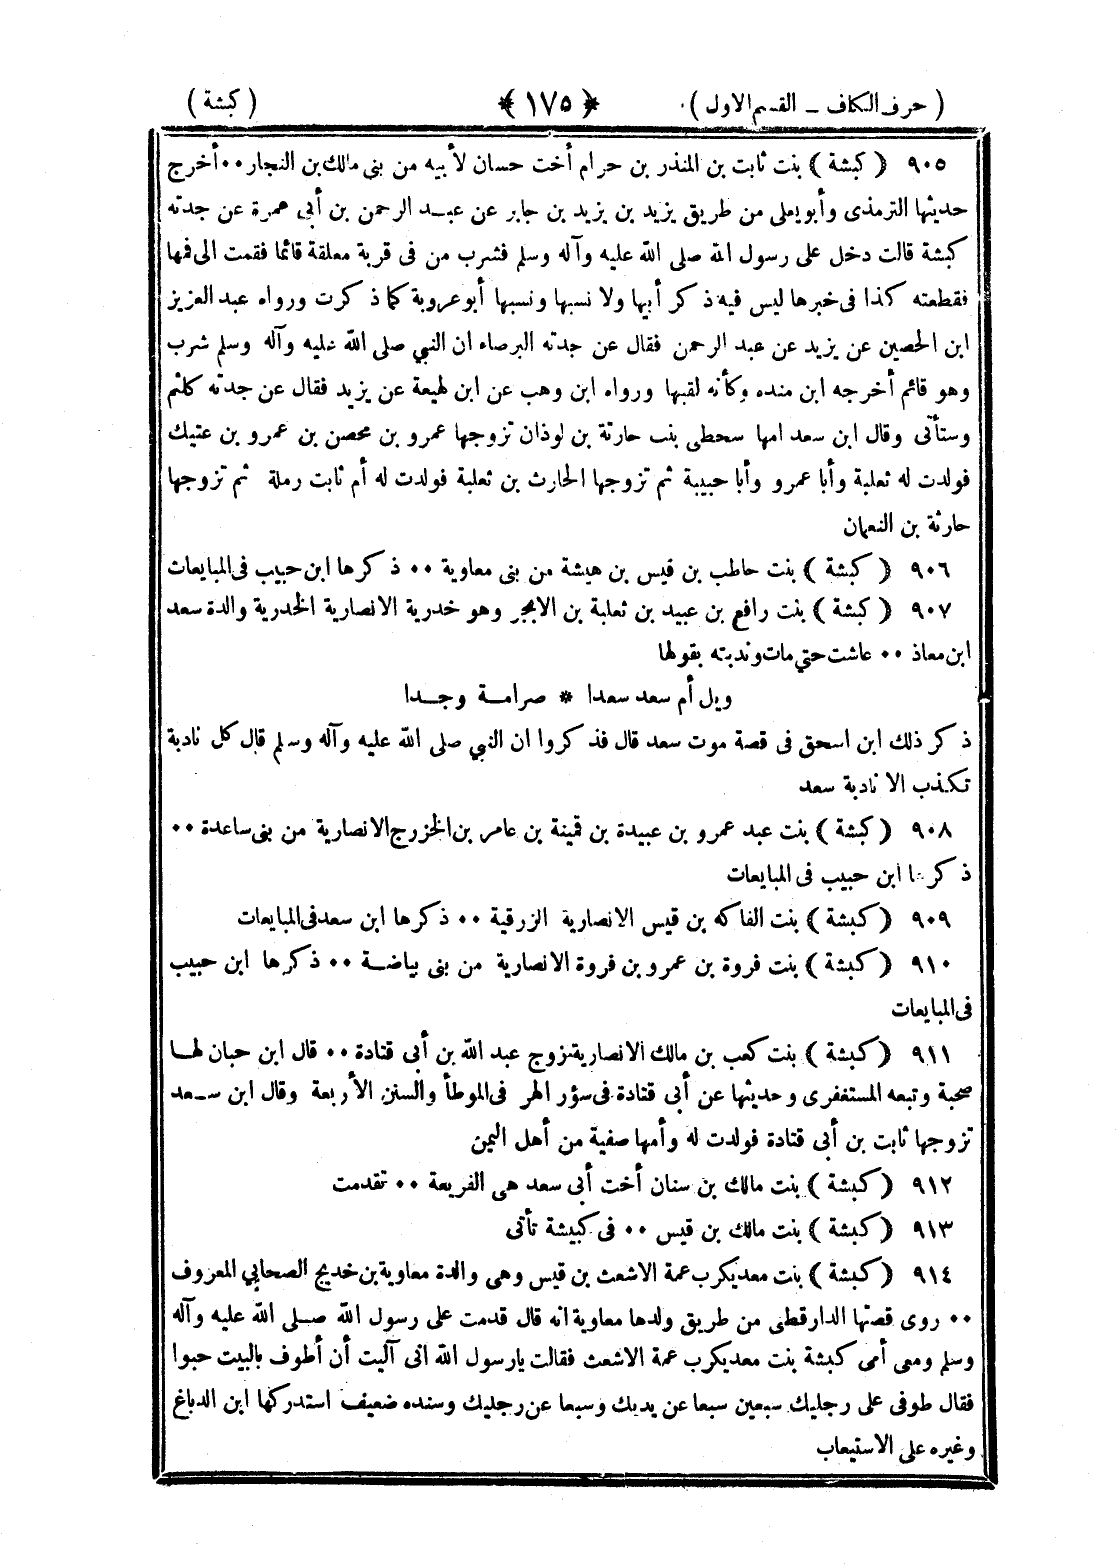 ( حرف الكاف – القسم الاول ) ﴿ ١٧٥ ﴾ ( كبشة )
٩٠٥ ( كبشة ) بنت ثابت بن المنذر بن حرام أخت حسان لأبيه من بنى مالك بن النجار ٠٠ أخرج
حديثها الترمذى وأبويعلى من طريق يزيد بن يزيد بن جابر عن عبد الرحمن بن أبي عمرة عن جدته
كبشة قالت دخل على رسول الله صلى الله عليه وآله وسلم فشرب من فى قربة معلقة قائما فقمت الى فمها
فقطعته كذا فى خبرها ليس فيه ذكر أبيها ولا نسبها ونسبها أبو عروبة كما ذكرت ورواه عبد العزيز
ابن الحصين عن يزيد عن عبد الرحمن فقال عن جدته البرصاء ان النبي صلى الله عليه وآله وسلم شرب
وهو قائم أخرجه ابن منده وكأنه لقبها ورواه ابن وهب عن ابن لهيعة عن يزيد فقال عن جدته كلثم
وستأتى وقال ابن سعد امها سحطى بنت حارثة بن لوذان تزوجها عمرو بن محصن بن عمرو بن عتيك
فولدت له ثعلبة وأبا عمرو وأبا حبيبة ثم تزوجها الحارث بن ثعلبة فولدت له أم ثابت رملة ثم تزوجها
حارثة بن النعمان
٩٠٦ ( كبشة ) بنت حاطب بن قيس بن هيشة من بنى معاوية ٠٠ ذكرها ابن حبيب فى المبايعات
٩٠٧ ( كبشة ) بنت رافع بن عبيد بن ثعلبة بن الابجر وهو خدرية الانصارية الخدرية والدة سعد
ابن معاذ ٠٠ عاشت حتي مات وندبته بقولها
ويل أم سعد سعدا * صرامة وجدا
ذكر ذلك ابن اسحق فى قصة موت سعد قال فذكروا ان النبي صلى الله عليه وآله وسلم قال كل نادبة
تكذب الا نادبة سعد
٩٠٨ ( كبشة ) بنت عبد عمرو بن عبيدة بن قمينة بن عامر بن الخزرج الانصارية من بنى ساعدة ٠٠
ذكرها ابن حبيب فى المبايعات
٩٠٩ ( كبشة ) بنت الفاكه بن قيس الانصارية الزرقية ٠٠ ذكرها ابن سعد فى المبايعات
٩١٠ ( كبشة ) بنت فروة بن عمرو بن فروة الانصارية من بنى بياضة ٠٠ ذكرها ابن حبيب
فى المبايعات
٩١١ ( كبشة ) بنت كعب بن مالك الانصارية تزوج عبد الله بن أبى قتادة ٠٠ قال ابن حبان لها
صحبة وتبعه المستغفرى وحديثها عن أبى قتادة فى سؤر الهر فى الموطأ والسنن الأربعة وقال ابن سعد
تزوجها ثابت بن أبى قتادة فولدت له وأمها صفية من أهل اليمن
٩١٢ ( كبشة ) بنت مالك بن سنان أخت أبى سعد هى الفريعة ٠٠ تقدمت
٩١٣ ( كبشة ) بنت مالك بن قيس ٠٠ فى كبيشة تأتى
٩١٤ ( كبشة ) بنت معديكرب عمة الاشعث بن قيس وهى والدة معاوية بن خديج الصحابي المعروف
٠٠ روى قصتها الدارقطى من طريق ولدها معاوية انه قال قدمت على رسول الله صلى الله عليه وآله
وسلم ومعى أمى كبشة بنت معديكرب عمة الاشعث فقالت يارسول الله انى آليت أن أطوف بالبيت حبوا
فقال طوفى على رجليك سبعين سبعا عن يديك وسبعا عن رجليك وسنده ضعيف استدركها ابن الدباغ
وغيره على الاستيعاب